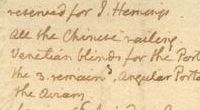 reserved for J. Hemings
All the Chinese railing
Venetian blinds for the Port
the 3. remaing. Angular Porta
the Aviary